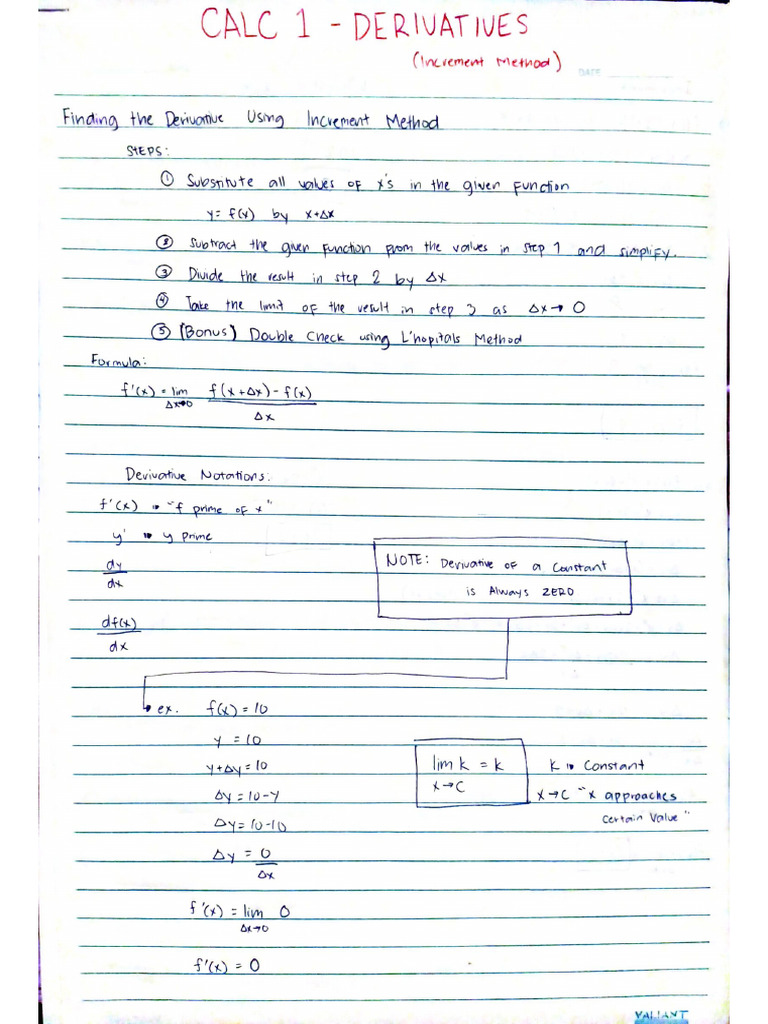 CALC 1 - DERIVATIVES
(Increment Method)
DATE
Finding the Derivative Using Increment Method
STEPS:
① Substitute all values of x's in the given function
y = f(x) by x+Δx
② Subtract the given function from the values in step 1 and simplify.
③ Divide the result in step 2 by Δx
④ Take the limit of the result in step 3 as Δx → 0
⑤ (Bonus) Double Check using L'hopitals Method
Formula:
f'(x) = lim f(x+Δx) - f(x)
Δx→0
Δx
Derivative Notations:
f'(x) → "f prime of x"
y' → y prime
dy
dx
NOTE: Derivative of a Constant
is Always ZERO
df(x)
dx
ex. f(x) = 10
y = 10
y+Δy = 10
Δy = 10-y
Δy = 10-10
Δy = 0
Δx
f'(x) = lim 0
Δx→0
f'(x) = 0
lim k = k
x→c
k → constant
x→c "x approaches
certain value"
VALIANT